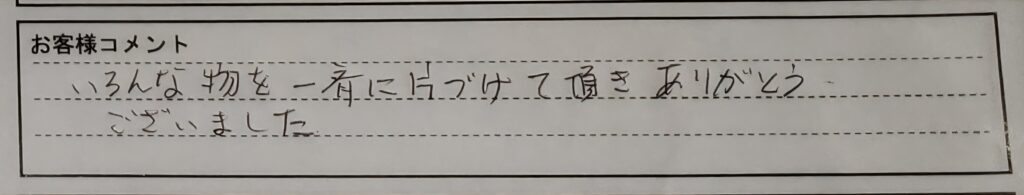 お客様コメント
いろんな物を一斉に片づけて頂きありがとう
ございました